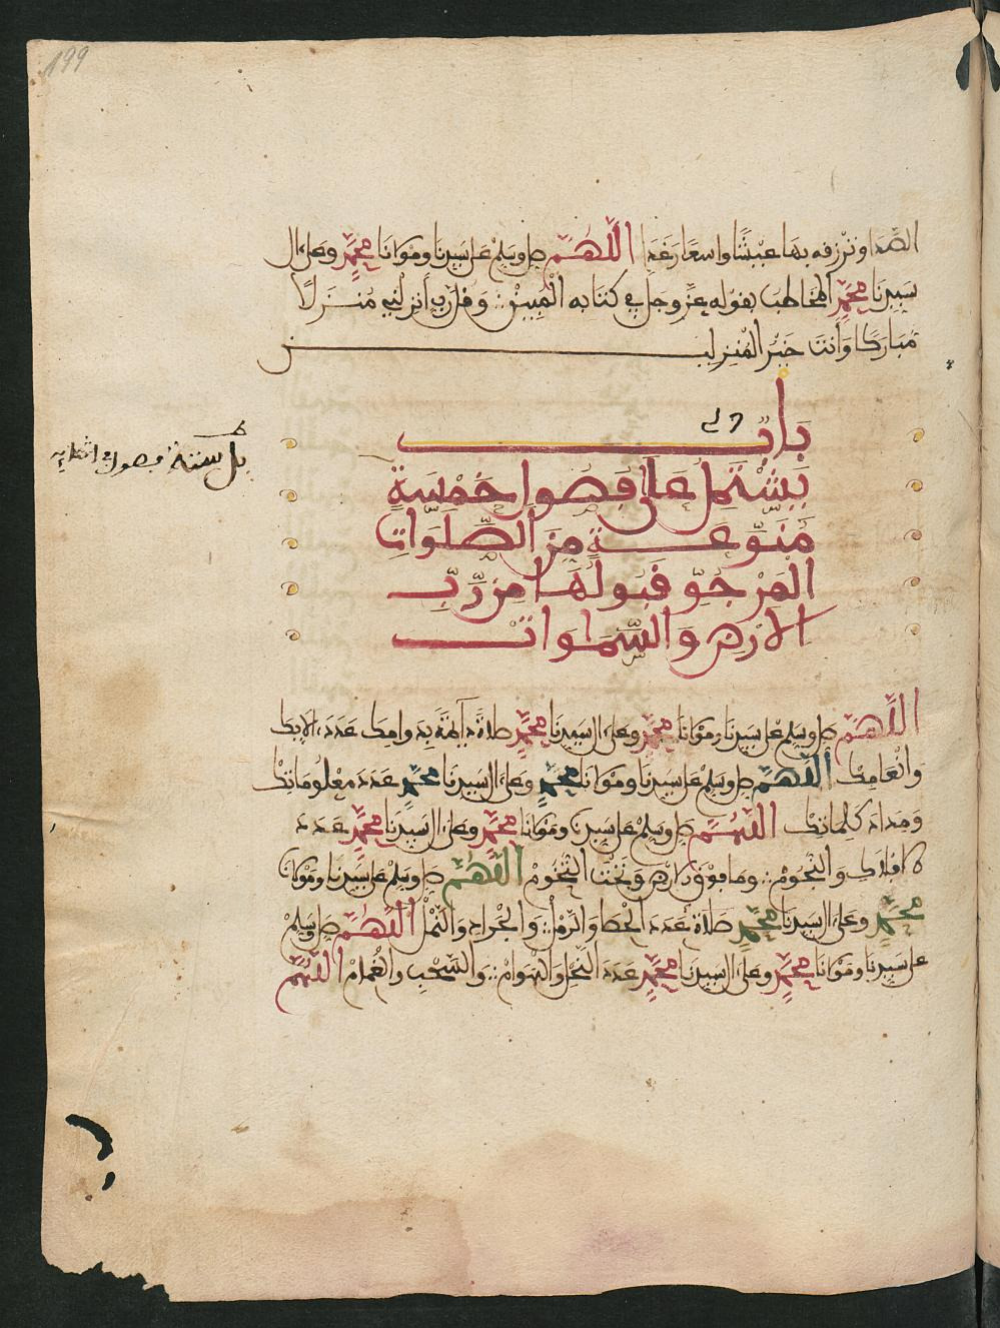 199
الصدا وترزقه بها عيشا واسعا رغدا اللهم صل وسلم على سيدنا ومولانا محمد وعلى ءال
سيدنا محمد المخاطب بقوله عز وجل في كتابه المبين وقل رب أنزلني منزلا
مباركا وأنت خير المنزلين
باب
يشتمل على فصول خمسة
منوعة من الصلوات
المرجو قبولها من رب
الارض والسماوات
بل ستة فصول
اللهم صل وسلم على سيدنا ومولانا محمد وعلى ءال سيدنا محمد صلاة دايمة بدوامك عدد
وانعامك اللهم صل وسلم على سيدنا ومولانا محمد وعلى ءال سيدنا محمد عدد معلوماتك
ومداد كلماتك اللهم صل وسلم على سيدنا ومولانا محمد وعلى ءال سيدنا محمد عدد
الافلاك والنجوم وما فوق وتحت التخوم اللهم صل وسلم على سيدنا ومولانا
محمد وعلى ءال سيدنا محمد صلاة عدد الحصا والرمل والجراد والنمل اللهم صل وسلم
على سيدنا ومولانا محمد وعلى ءال سيدنا محمد عدد النحل والهوام والسحب والغمام اللهم